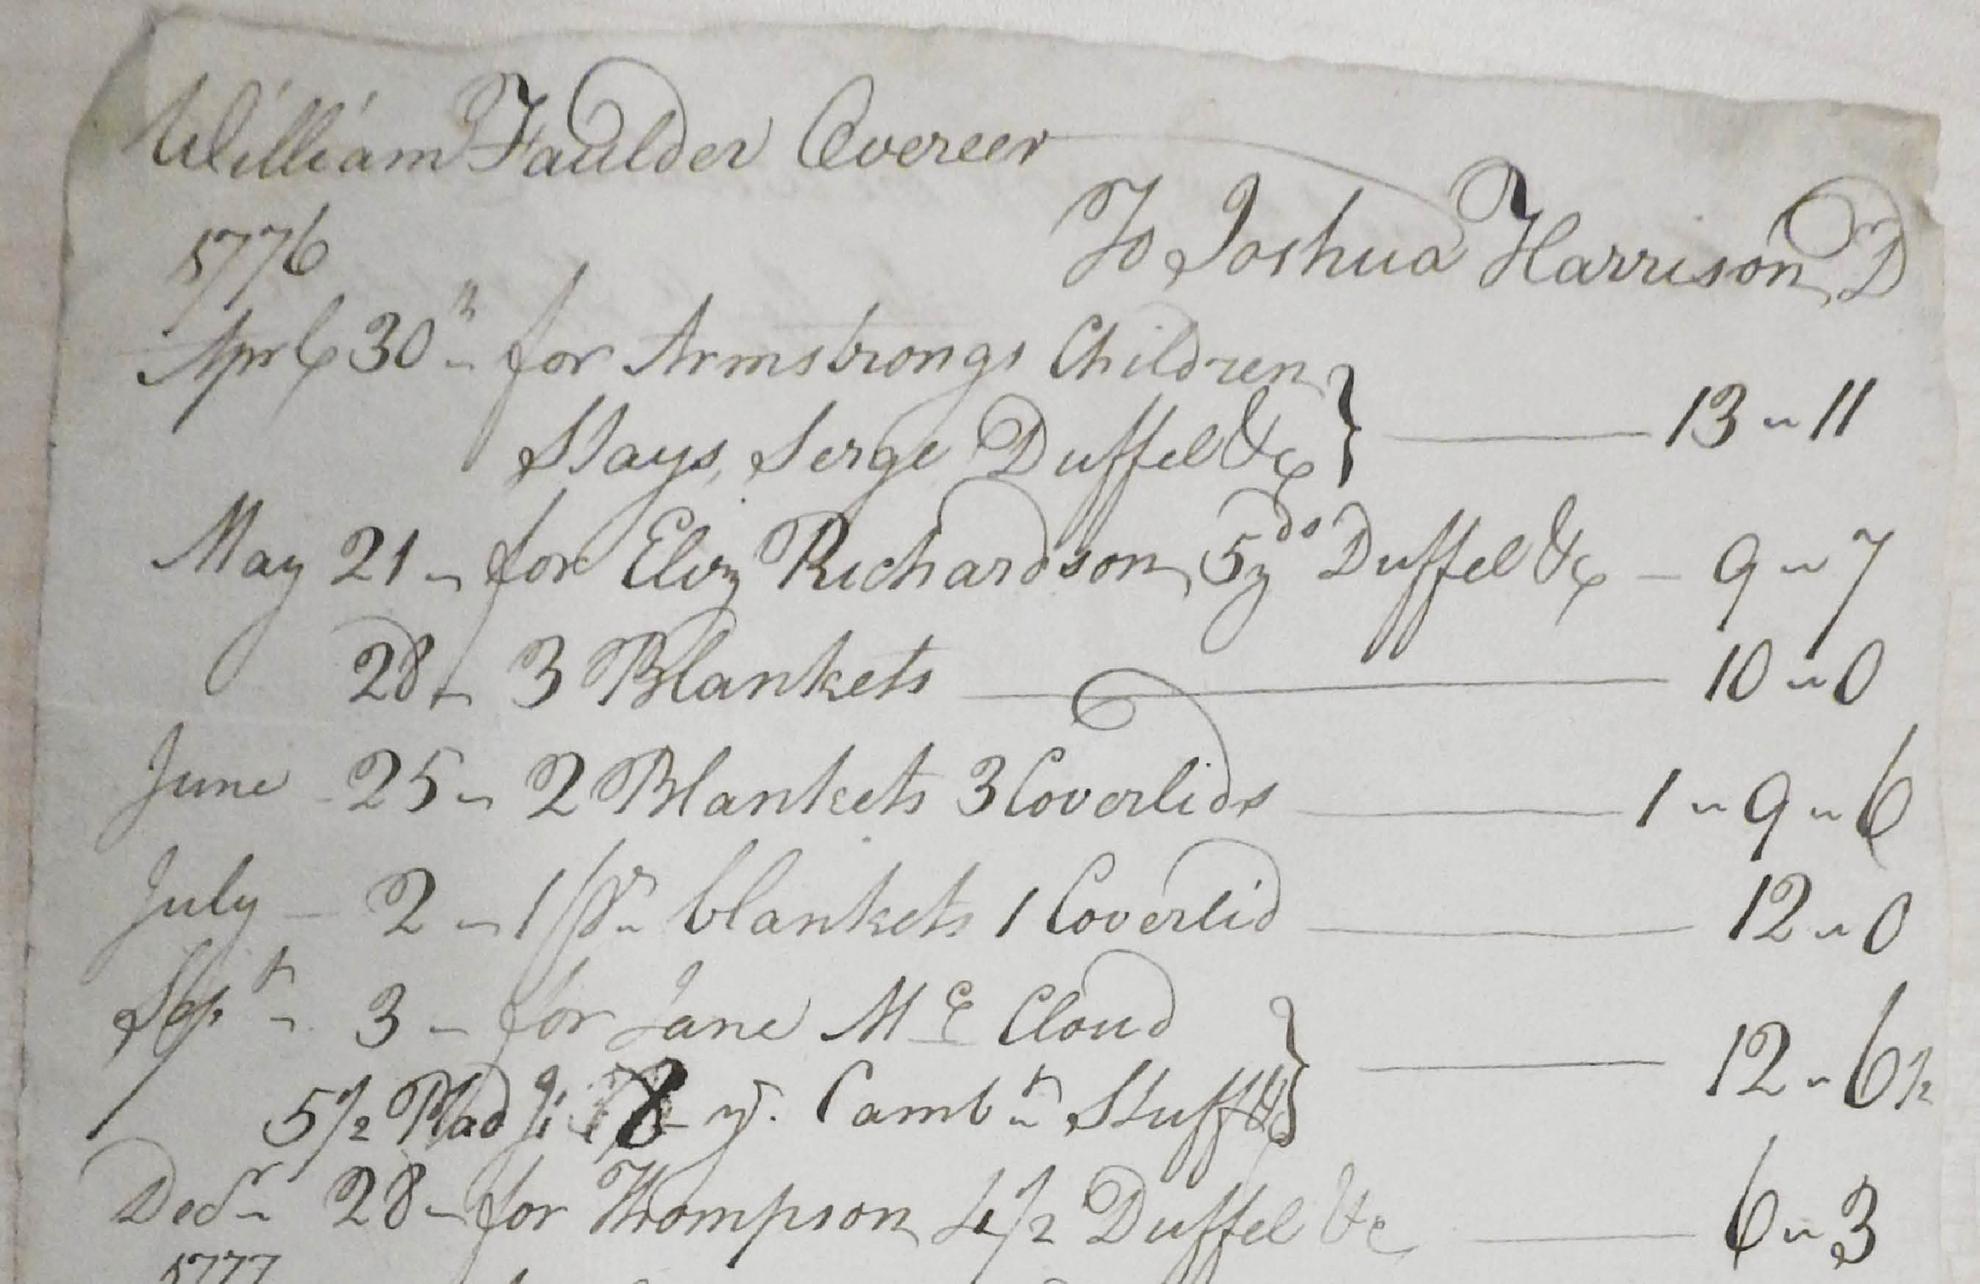 William Faulder Overeer
To Joshua Harrison D
1776
Aprl 30th for Armstrongs Children
Stays, Serge Duffel &c } 13 " 11
May 21 for Eliz Richardson 5yds Duffel &c 9 " 7
28 3 Blankets 10 " 0
June 25 2 Blankets 3 Coverlids 1 " 9 " 6
July 2 1 pr blankets 1 Coverlid 12 " 0
Sept 3 for Jane Mc Cloud
5 1/2 Plad 8 y. Cambt Stuff & } 12 " 6 1/2
Decr 28 for Thompson 4 1/2 Duffel &c 6 " 3
1777